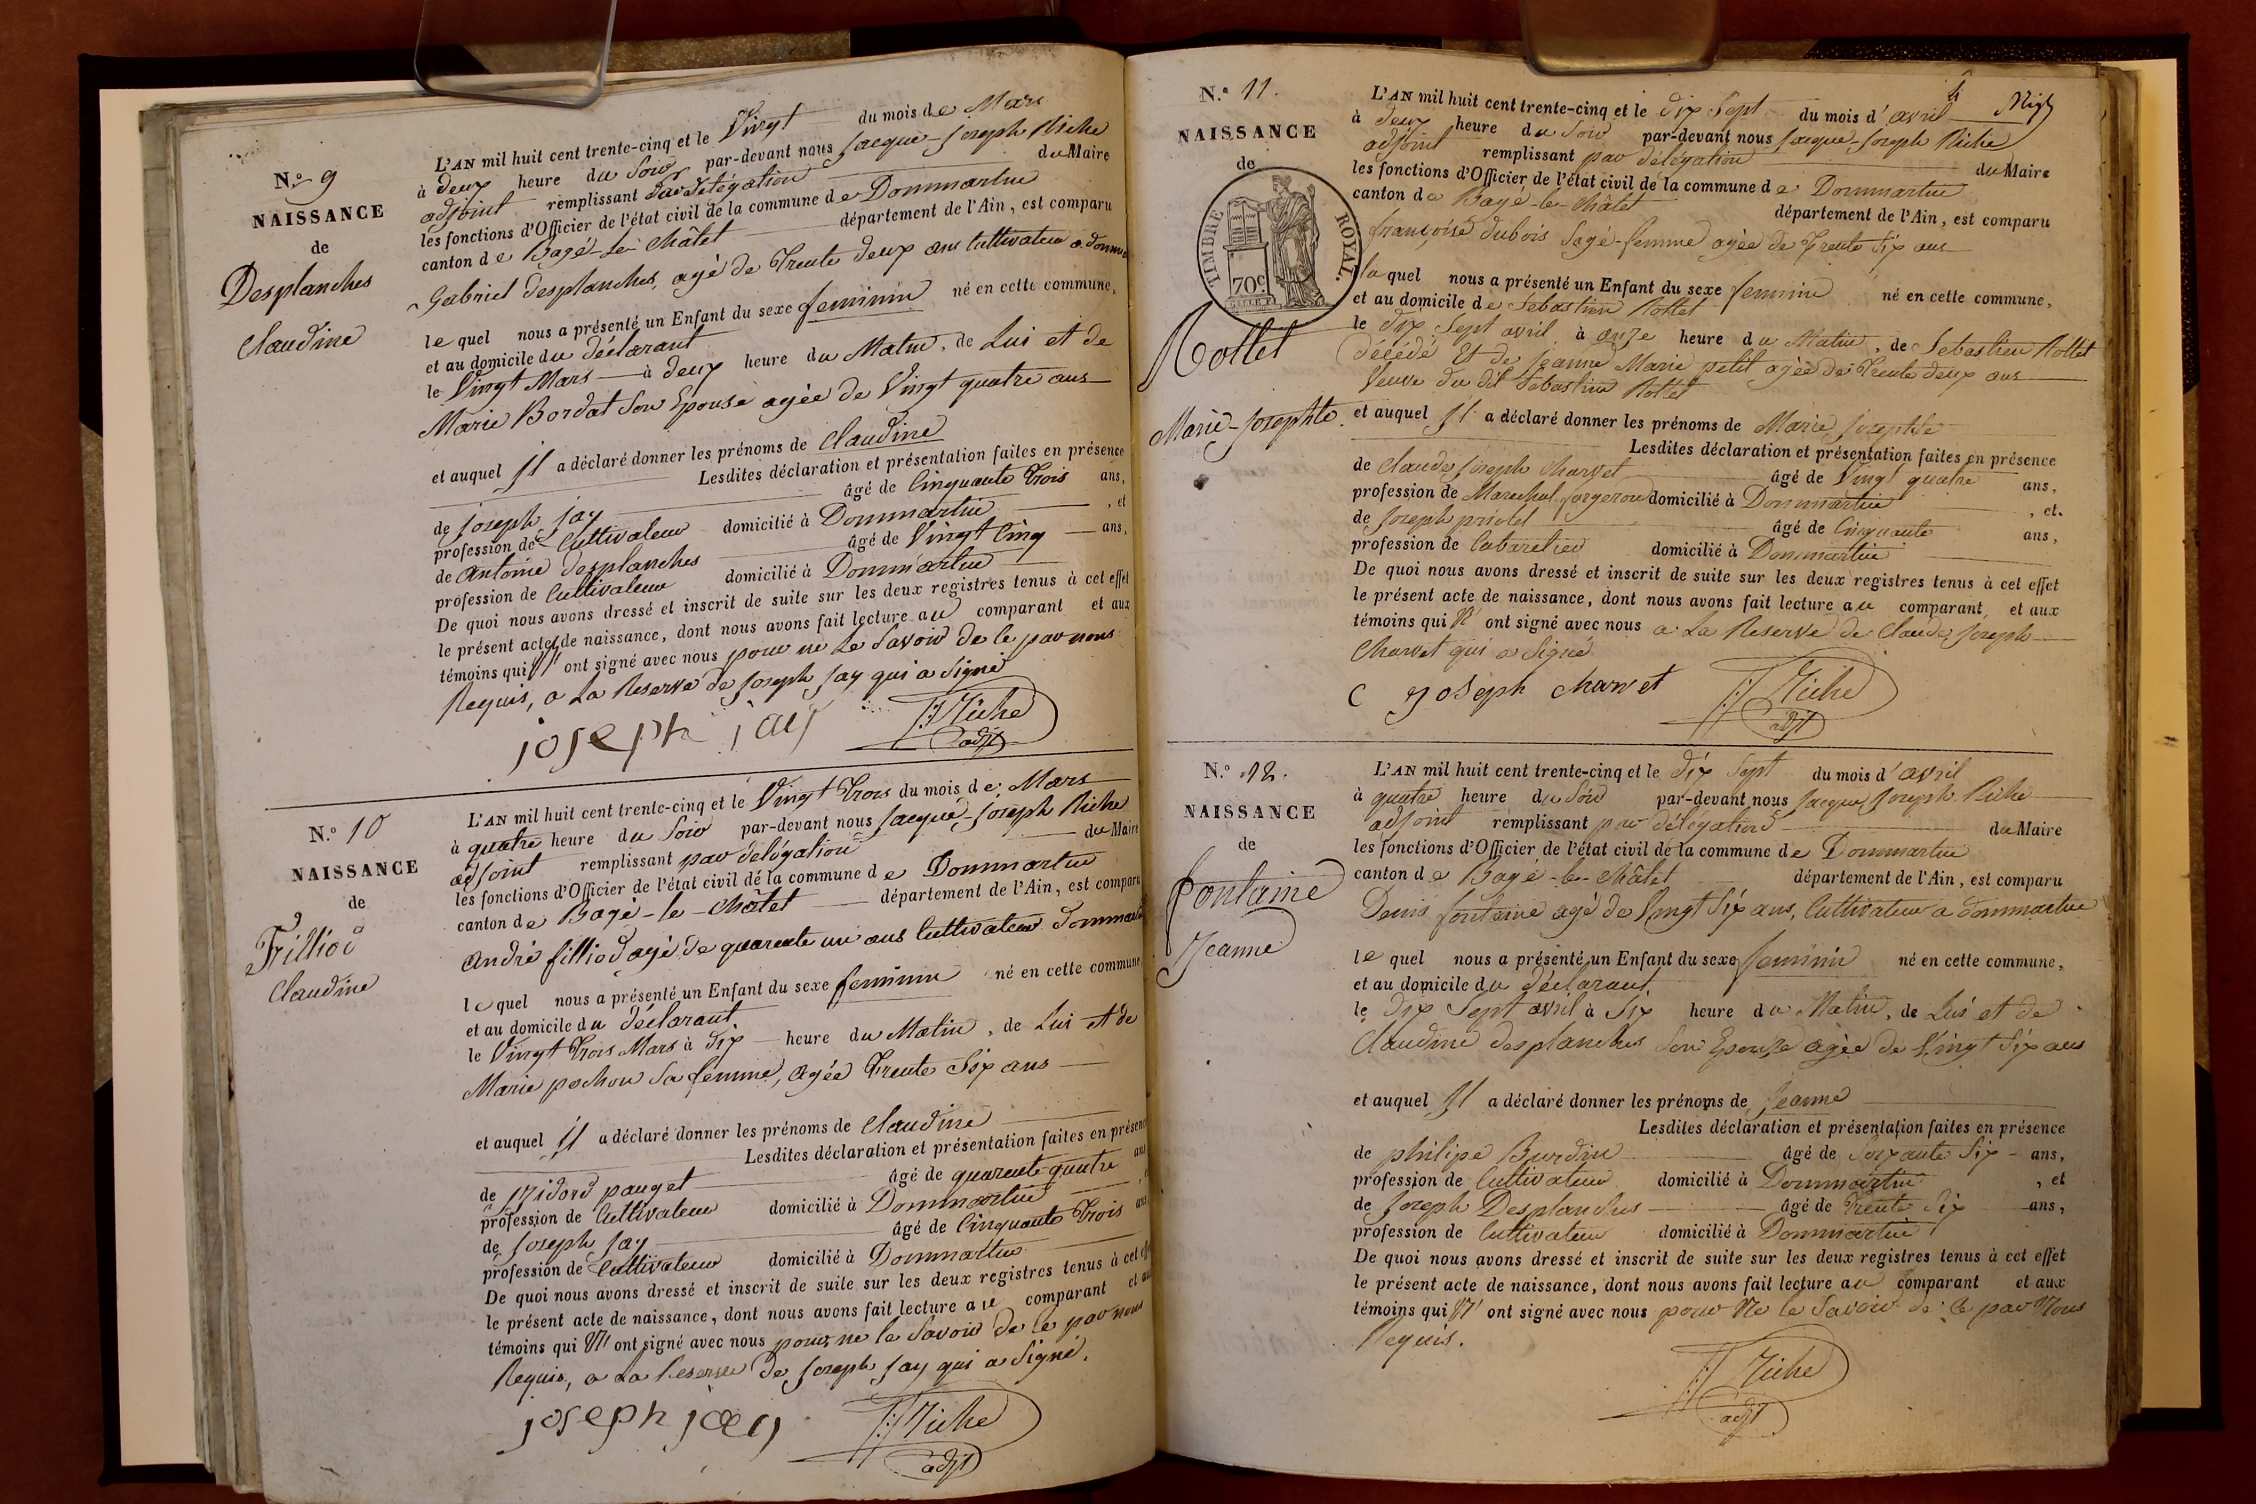 N.o 9
NAISSANCE
de
Desplanches
Claudine
L'AN mil huit cent trente-cinq et le Vingt du mois de Mars
à deux heure du Soir par-devant nous Jacque Joseph Riche
adjoint remplissant par délégation du Maire
les fonctions d'Officier de l'état civil de la commune de Dommartin
canton de Bagé-le-Châtel département de l'Ain, est comparu
Gabriel desplanches, agé de Trente deux ans Cultivateur a
le quel nous a présenté un Enfant du sexe feminin né en cette commune,
et au domicile du déclarant
le Vingt Mars à deux heure du Matin, de Lui et de
Marie Bordat Son Epouse agée de Vingt quatre ans
et auquel Il a déclaré donner les prénoms de Claudine
Lesdites déclaration et présentation faites en présence
de Joseph Jay âgé de Cinquante Trois ans,
profession de Cultivateur domicilié à Dommartin, et
de Antoine desplanches âgé de Vingt Cinq ans,
profession de Cultivateur domicilié à Dommartin
De quoi nous avons dressé et inscrit de suite sur les deux registres tenus à cet effet
le présent acte de naissance, dont nous avons fait lecture au comparant et aux
témoins qui N' ont signé avec nous pour ne Le Savoir de ce par nous
Requis, a La Reserve de Joseph Jay qui a Signé
joseph jay
J:J Riche
adjt
N.o 10
NAISSANCE
de
Filliod
Claudine
L'AN mil huit cent trente-cinq et le Vingt Trois du mois de Mars
à quatre heure du Soir par-devant nous Jacque Joseph Riche
adjoint remplissant par délégation du Maire
les fonctions d'Officier de l'état civil de la commune de Dommartin
canton de Bagé-le-Châtel département de l'Ain, est comparu
André filliod agé de quarente un ans Cultivateur
le quel nous a présenté un Enfant du sexe feminin né en cette commune
et au domicile du déclarant
le Vingt Trois Mars à dix heure du Matin, de Lui et de
Marie pochon Sa femme, agée Trente Six ans
et auquel Il a déclaré donner les prénoms de Claudine
Lesdites déclaration et présentation faites en présence
de pauget âgé de quarente quatre ans
profession de Cultivateur domicilié à Dommartin
de Joseph Jay âgé de Cinquante Trois ans
profession de Cultivateur domicilié à Dommartin
De quoi nous avons dressé et inscrit de suite sur les deux registres tenus à cet
le présent acte de naissance, dont nous avons fait lecture au comparant et
témoins qui N' ont signé avec nous pour ne le Savoir de ce par nous
Requis, a La Reserve de Joseph Jay qui a Signé.
joseph jay
J:J Riche
adjt
4
N.o 11.
NAISSANCE
de
TIMBRE ROYAL.
70c
Rollet
Marie-Josephte
L'AN mil huit cent trente-cinq et le dix Sept du mois d'avril
à deux heure du Soir par-devant nous Jacque-Joseph Riche
adjoint remplissant par délégation du Maire
les fonctions d'Officier de l'état civil de la commune de Dommartin
canton de Bagé-le-Châtel département de l'Ain, est comparu
françoise dubois Sage-femme agée de Trente Six ans
la quel nous a présenté un Enfant du sexe feminin né en cette commune,
et au domicile de Sebastien Rollet
le dix Sept avril à onze heure du Matin, de Sebastien Rollet
décédé Et de Jeanne Marie petit agée de Trente deux ans
Veuve du dit Sebastien Rollet
et auquel Il a déclaré donner les prénoms de Marie Josephte
Lesdites déclaration et présentation faites en présence
de Claude Joseph Charvet âgé de Vingt quatre ans,
profession de Marechal forgeron domicilié à Dommartin, et
de Joseph âgé de Cinquante ans,
profession de Cabaretier domicilié à Dommartin
De quoi nous avons dressé et inscrit de suite sur les deux registres tenus à cet effet
le présent acte de naissance, dont nous avons fait lecture au comparant et aux
témoins qui N' ont signé avec nous a La Reserve de Claude Joseph
Charvet qui a Signé
C joseph charvet
J:J Riche
adjt
N.o 12.
NAISSANCE
de
fontaine
Jeanne
L'AN mil huit cent trente-cinq et le dix Sept du mois d'avril
à quatre heure du Soir par-devant nous Jacque Joseph Riche
adjoint remplissant par délégation du Maire
les fonctions d'Officier de l'état civil de la commune de Dommartin
canton de Bagé-le-Châtel département de l'Ain, est comparu
Denis fontaine agé de Vingt Six ans, Cultivateur a dommartin
le quel nous a présenté un Enfant du sexe feminin né en cette commune,
et au domicile du déclarant
le dix Sept avril à Six heure du Matin, de Lui et de
Claudine desplanches Son Epouse agée de Vingt Six ans
et auquel Il a déclaré donner les prénoms de Jeanne
Lesdites déclaration et présentation faites en présence
de philipe Burdin âgé de Soixante Six ans,
profession de Cultivateur domicilié à Dommartin, et
de Joseph Desplanches âgé de Trente Six ans,
profession de Cultivateur domicilié à Dommartin
De quoi nous avons dressé et inscrit de suite sur les deux registres tenus à cet effet
le présent acte de naissance, dont nous avons fait lecture au comparant et aux
témoins qui N' ont signé avec nous pour Ne le Savoir de ce par Nous
Requis.
J:J Riche
adjt